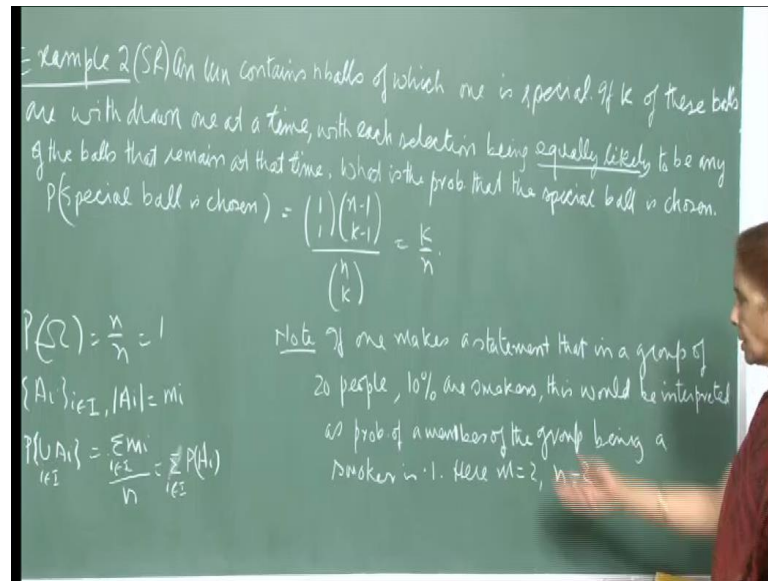 Example 2 (SR) An urn contains n balls of which one is special. If k of these balls
are with drawn one at a time, with each selection being equally likely to be any
of the balls that remain at that time, What is the prob. that the special ball is chosen.
P(Special ball is chosen) = (1 1)(n-1 k-1) / (n k) = k/n.
P(Ω) = n/n = 1
{Ai}i∈I, |Ai| = mi
P{∪Ai}i∈I = Σmi i∈I / n = Σ P(Ai) i∈I
Note If one makes a statement that in a group of
20 people, 10% are smokers, this would be interpreted
as prob. of a member of the group being a
smoker is .1. Here m=2, n=2